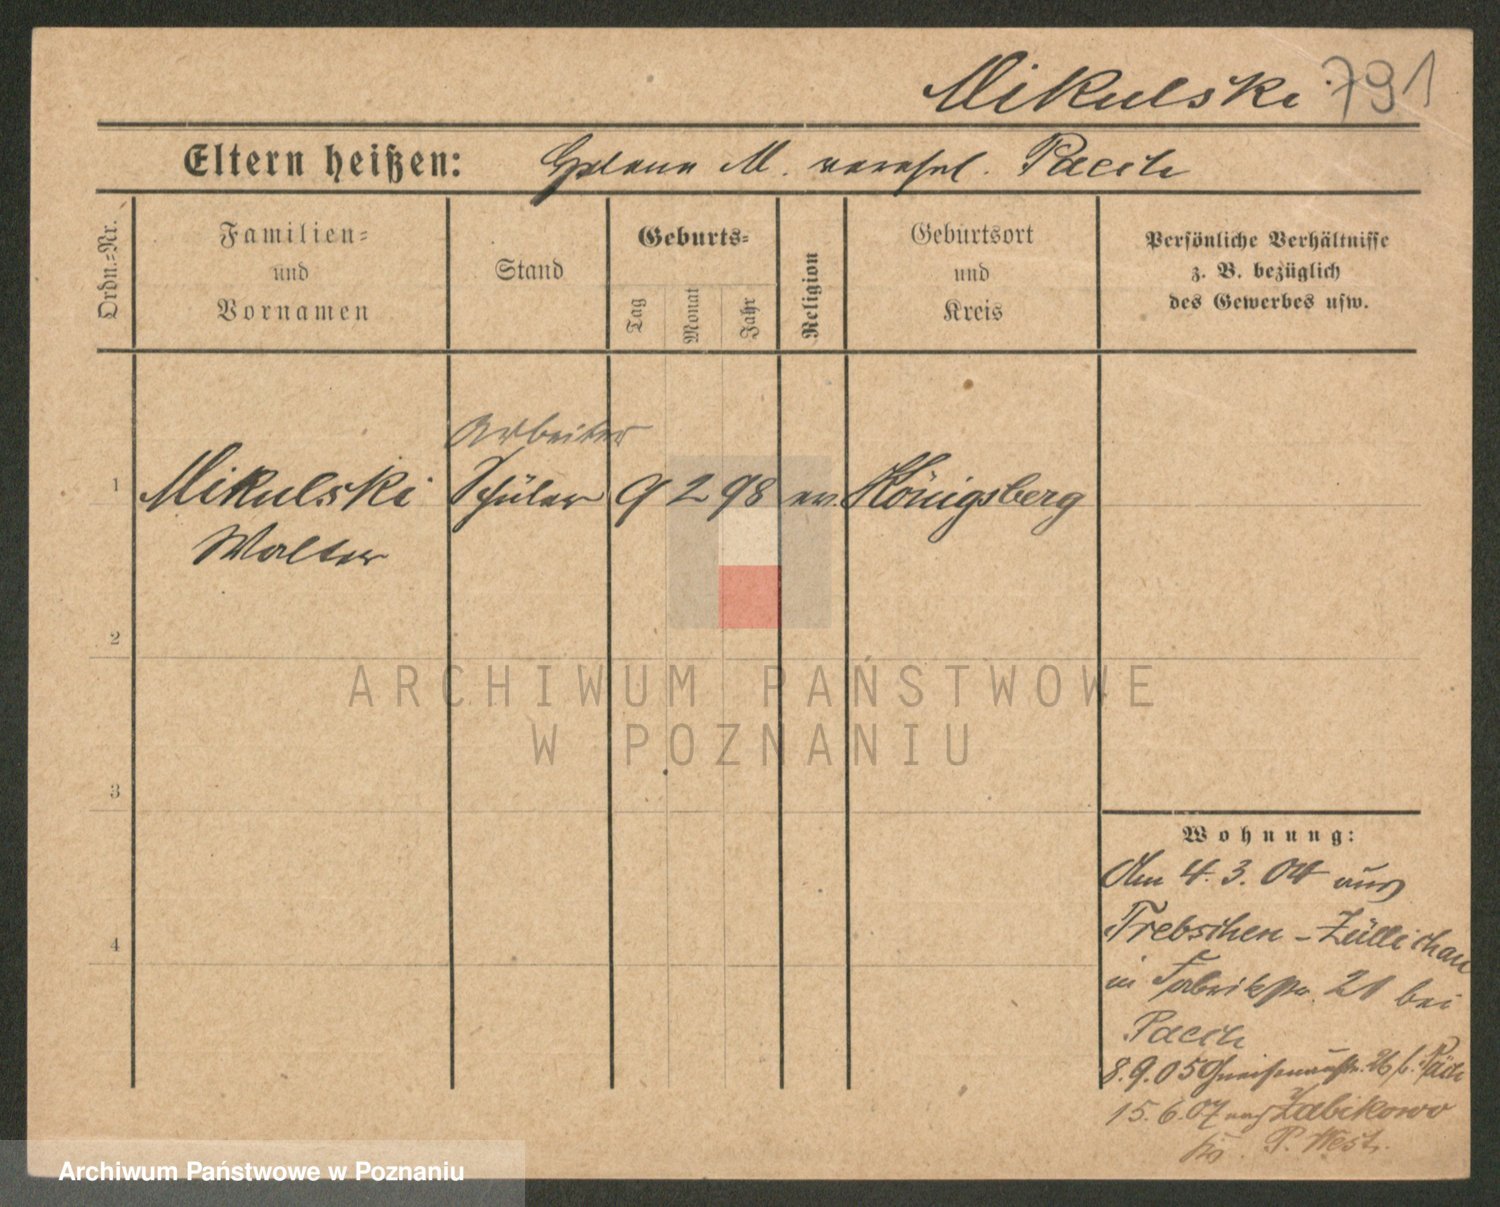 Mikulski 791
Eltern heißen: Helene M. verehel. Paech
Ordn.-Nr.
Familien-
und
Vornamen
Stand
Geburts-
Tag
Monat
Jahr
Religion
Geburtsort
und
Kreis
Persönliche Verhältnisse
z. B. bezüglich
des Gewerbes usw.
Arbeiter
1 Mikulski Schüler 9 2 98 ev. Königsberg
Walter
2
3
4
Wohnung:
Am 4. 3. 04 aus
Trebschen - Züllichau
in Fabrikstr. 21 bei
Paech
8.9.05 Gneisenaustr. 26 b. Päch
15.6.07 nach Zabikowo
Kr. P. West.
ARCHIWUM PAŃSTWOWE
W POZNANIU
Archiwum Państwowe w Poznaniu